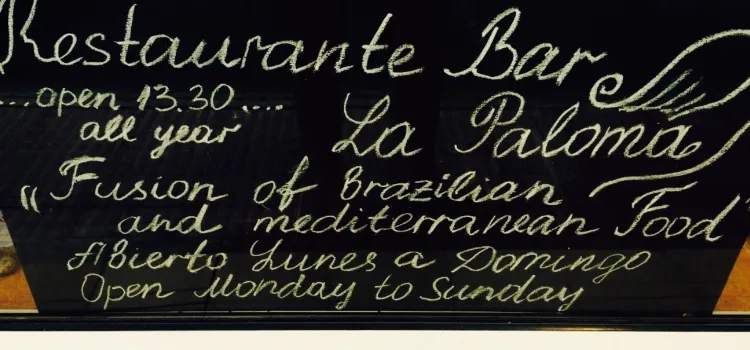 Restaurante Bar
....open 13.30....
all year
La Paloma
„Fusion of Brazilian
and mediterranean Food"
Abierto Lunes a Domingo
Open Monday to Sunday